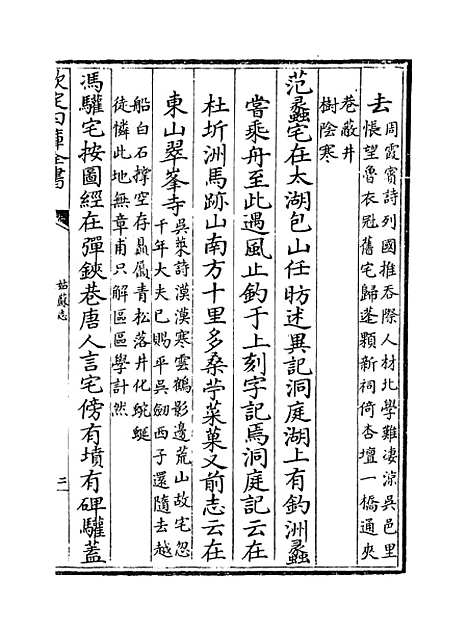 去周霞寄詩列國推吞際人材北學難凄涼吳邑里
悵望魯衣冠舊宅歸蓬顆新祠倚杏壇一橋通夾
巷蔽井
樹陰寒
范蠡宅在太湖包山任昉述異記洞庭湖上有釣洲蠡
嘗乘舟至此遇風止釣于上刻字記焉洞庭記云在
杜圻洲馬跡山南方十里多桑苧菜菓又前志云在
東山翠峯寺吳萊詩漠漠寒雲鶴影邊荒山故宅忽
千年大夫已賜平吳劒西子還隨去越
船白石撐空存贔屭青松落井化蜿蜒
徒憐此地無章甫只解區區學計然
馮驩宅按圖經在彈鋏巷唐人言宅傍有墳有碑驩蓋
欽定四庫全書
姑蘇志
二